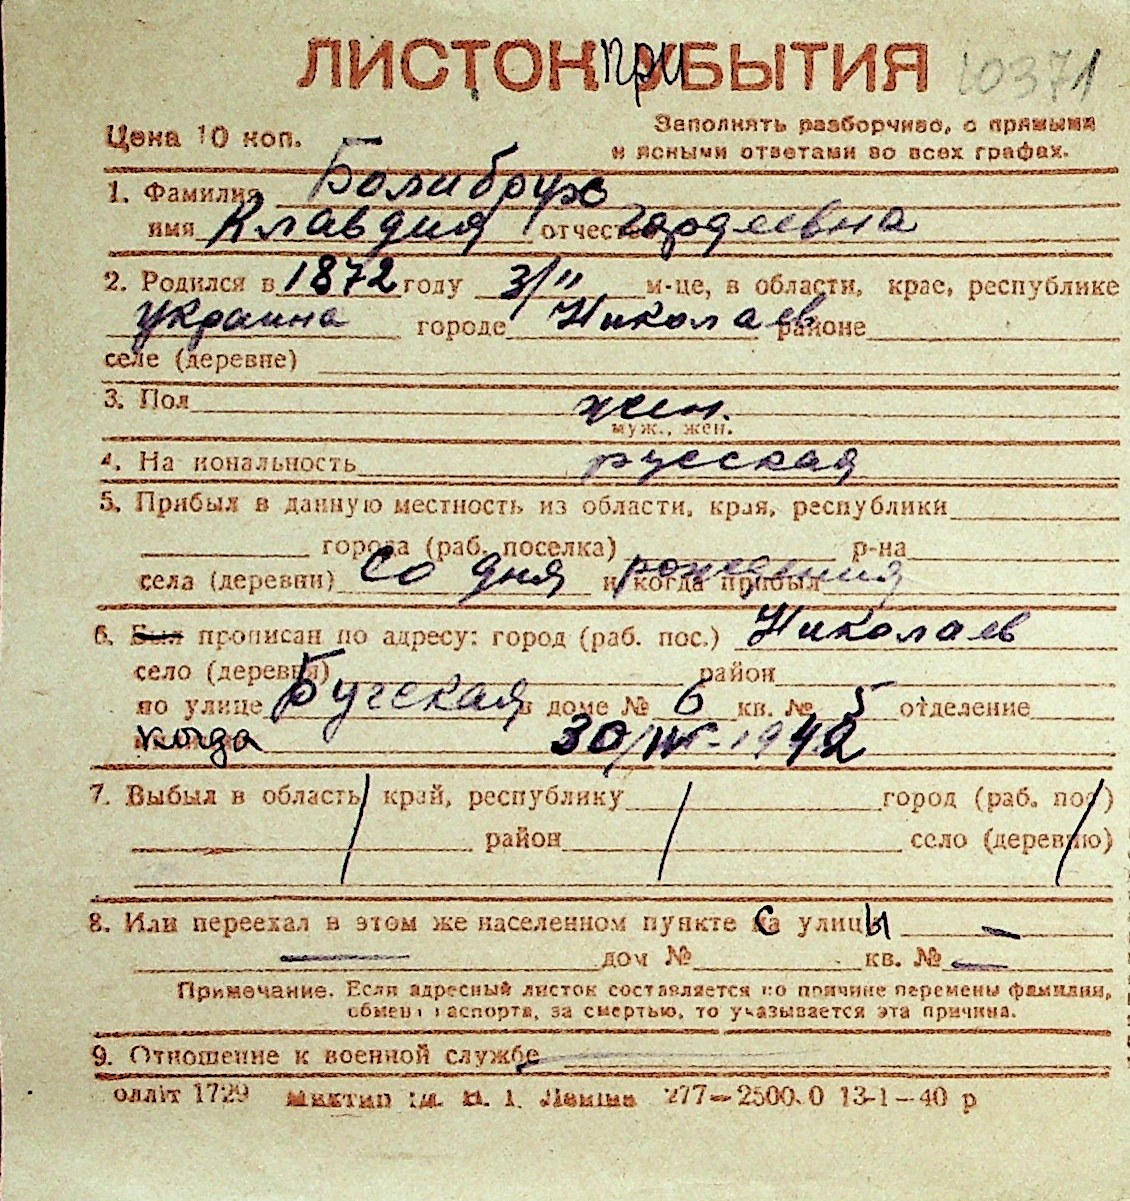 ЛИСТОК ПРИБЫТИЯ 10371
Цена 10 коп.
Заполнять разборчиво, с прямыми
и ясными ответами во всех графах.
1. Фамилия Болибрух
имя Клавдия отчество Гордеевна
2. Родился в 1872 году 3/II м-це, в области, крае, республике
Украина городе Николаев районе
селе (деревне)
3. Пол жен.
муж., жен.
4. Национальность русская
5. Прибыл в данную местность из области, края, республики
города (раб. поселка) р-на
села (деревни) со дня рождения и когда прибыл
6. Был прописан по адресу: город (раб. пос.) Николаев
село (деревня) район
по улице Бугская в доме № 6 кв. № 5 отделение
когда 30/IV-1942
7. Выбыл в область, край, республику город (раб. пос.)
район село (деревню)
8. Или переехал в этом же населенном пункте с улицы —
— дом № кв. № —
Примечание. Если адресный листок составляется по причине перемены фамилии,
обмена паспорта, за смертью, то указывается эта причина.
9. Отношение к военной службе
олліт 1729 277—2500.0 13-1—40 р